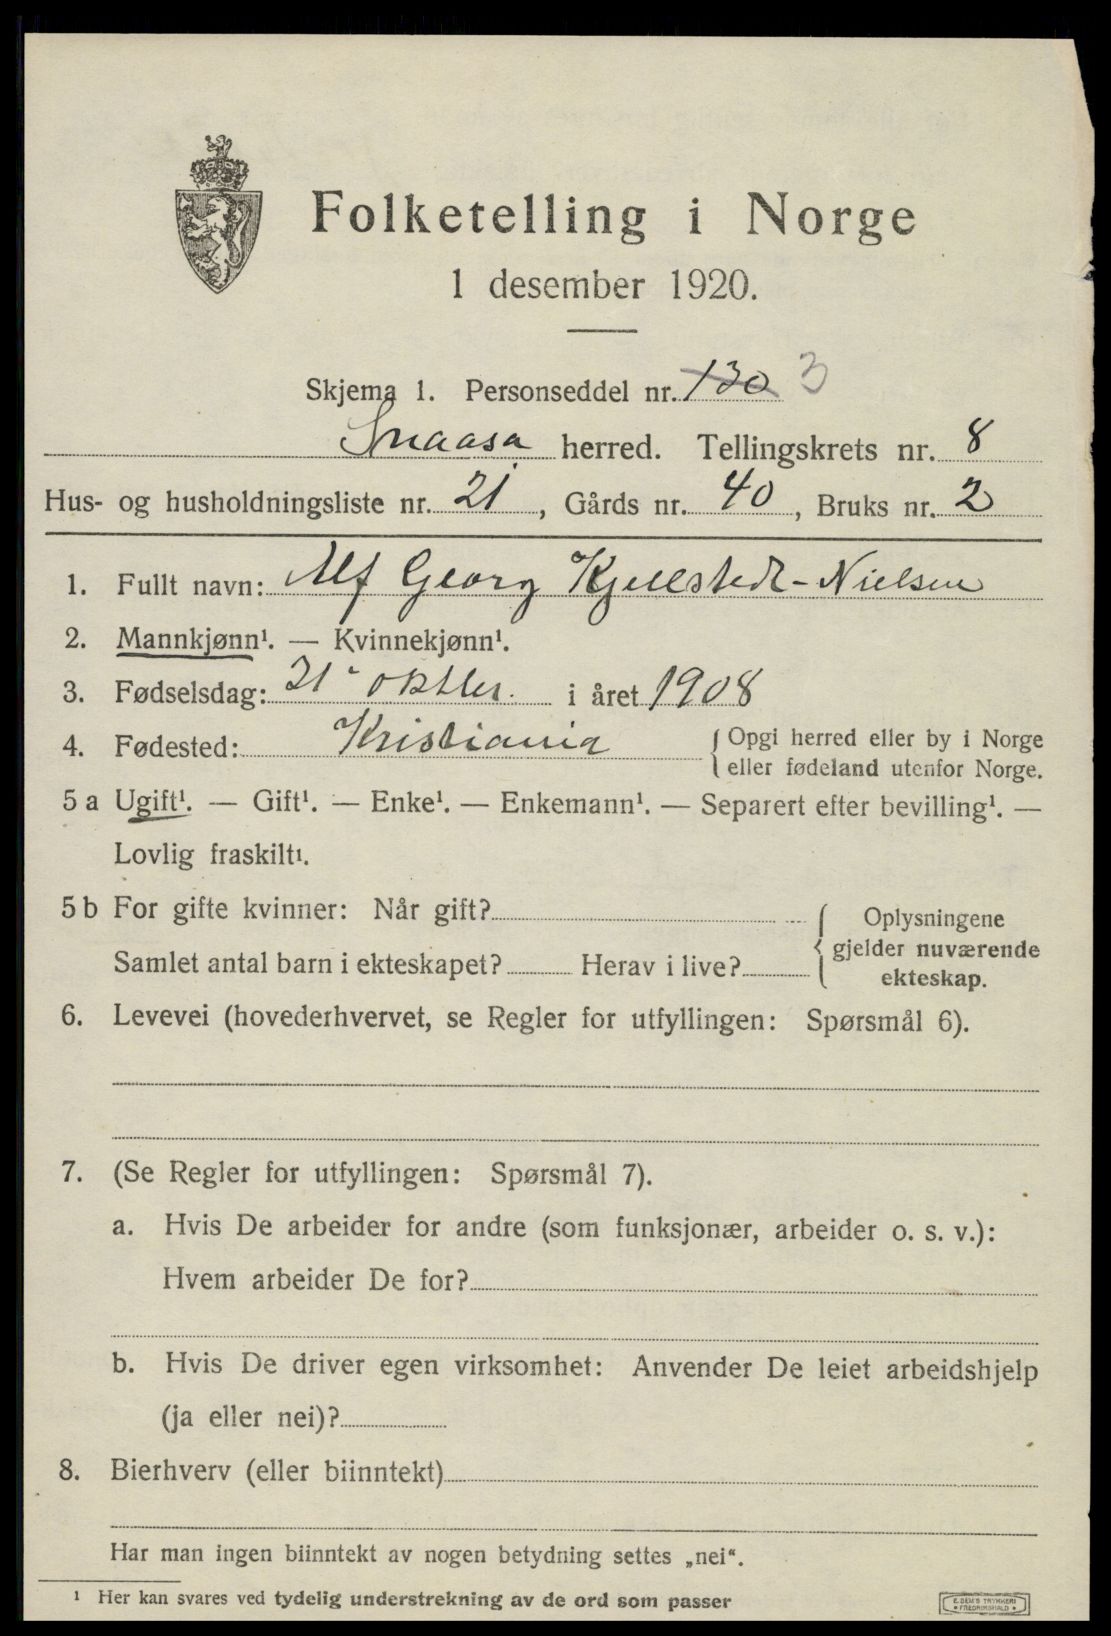 Folketelling i Norge
1 desember 1920.
Skjema 1. Personseddel nr. 130 3
Snaasa herred. Tellingskrets nr. 8
Hus- og husholdningsliste nr. 21, Gårds nr. 40, Bruks nr. 2
1. Fullt navn: Alf Georg Kjellstedt-Nielsen
2. Mannkjønn¹. — Kvinnekjønn¹.
3. Fødselsdag: 21 oktber. i året 1908
4. Fødested: Kristiania { Opgi herred eller by i Norge
eller fødeland utenfor Norge.
5 a Ugift¹. — Gift¹. — Enke¹. — Enkemann¹. — Separert efter bevilling¹. —
Lovlig fraskilt¹.
5 b For gifte kvinner: Når gift? { Oplysningene
gjelder nuværende
Samlet antal barn i ekteskapet? Herav i live?
ekteskap.
6. Levevei (hovederhvervet, se Regler for utfyllingen: Spørsmål 6).
7. (Se Regler for utfyllingen: Spørsmål 7).
a. Hvis De arbeider for andre (som funksjonær, arbeider o. s. v.):
Hvem arbeider De for?
b. Hvis De driver egen virksomhet: Anvender De leiet arbeidshjelp
(ja eller nei)?
8. Bierhverv (eller biinntekt)
Har man ingen biinntekt av nogen betydning settes „nei“.
¹ Her kan svares ved tydelig understrekning av de ord som passer
E. DEM'S TRYKKERI
• FREDRIKSHALD •